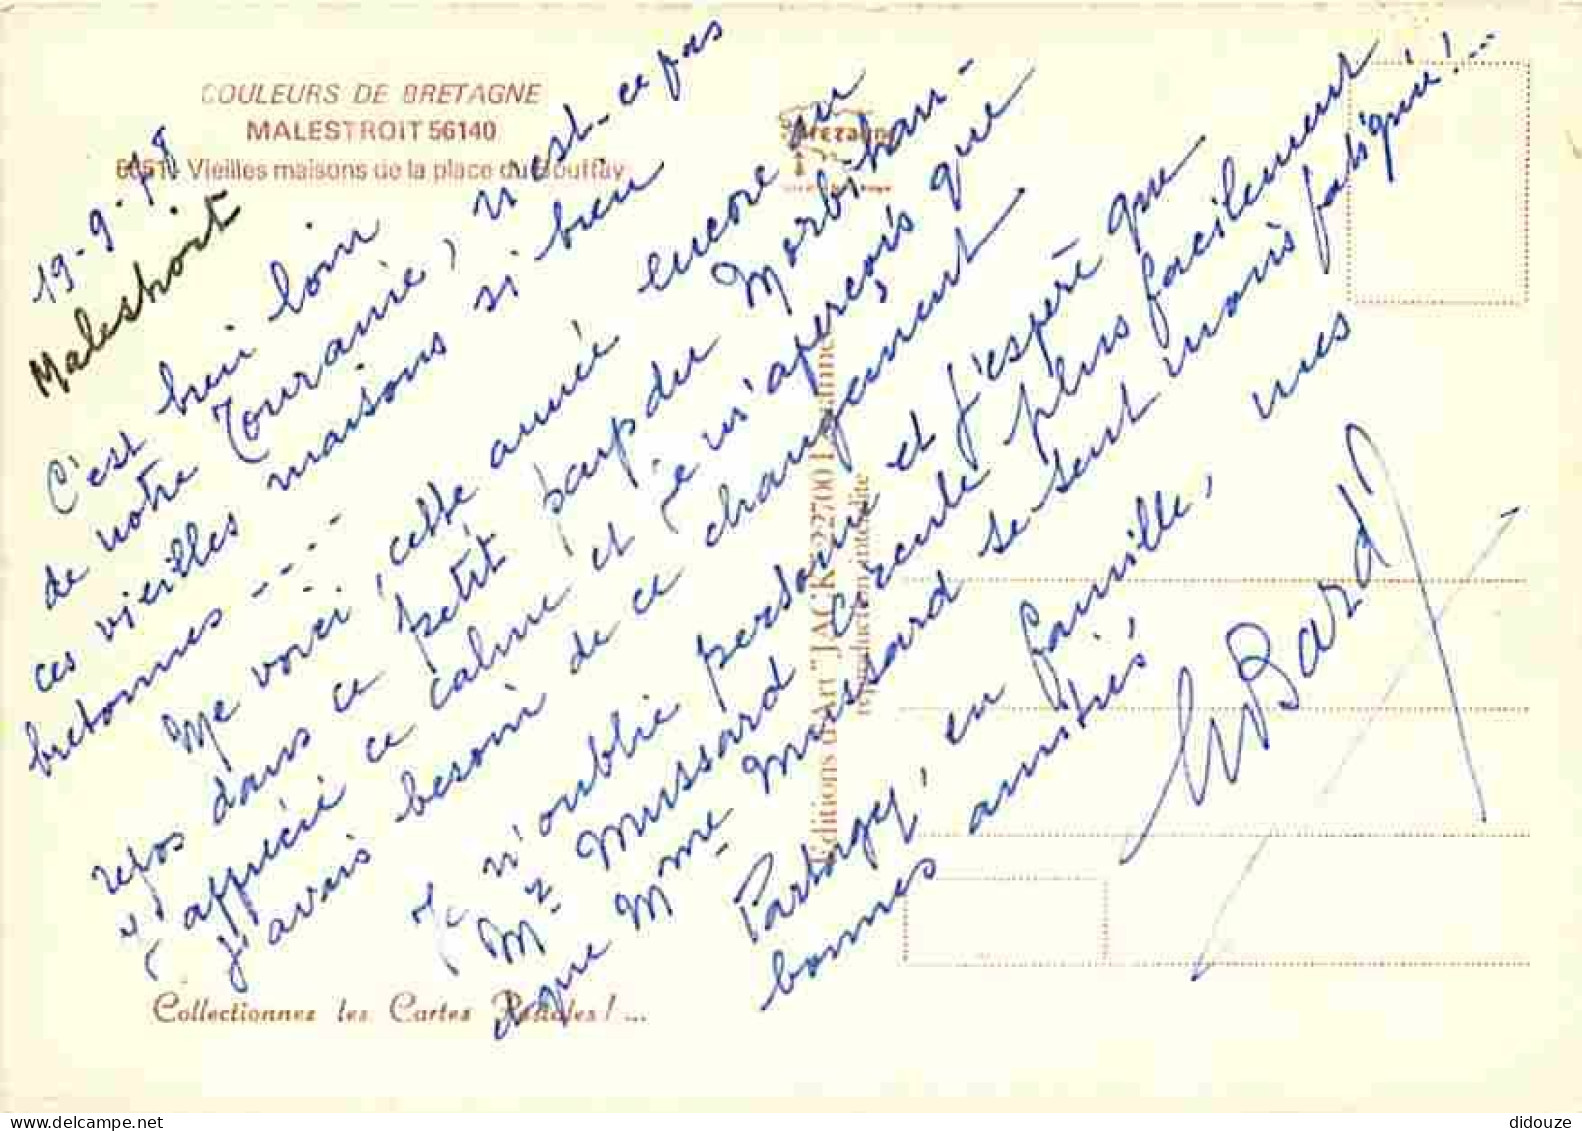 COULEURS DE BRETAGNE
MALESTROIT 56140
Vieilles maisons de la place du Bouffay
Bretagne
19-9-78
Malestroit
C'est bien loin
de notre Touraine, n'est-ce pas
ces vieilles maisons si bien
bretonnes - - - -
Me voici, cette année encore au
repos dans ce petit pays du Morbihan -
J'apprécie ce calme et je m'aperçois que
j'avais besoin de ce changement
Je n'oublie personne et j'espère que
Mr Mussard circule plus facilement
que Mme Mussard se sent moins fatiguée!...
Partagez, en famille, mes
bonnes amitiés
Bard
Editions d'Art "JACK" 22700
reproduction interdite
Collectionnez les Cartes Postales!...
didouze